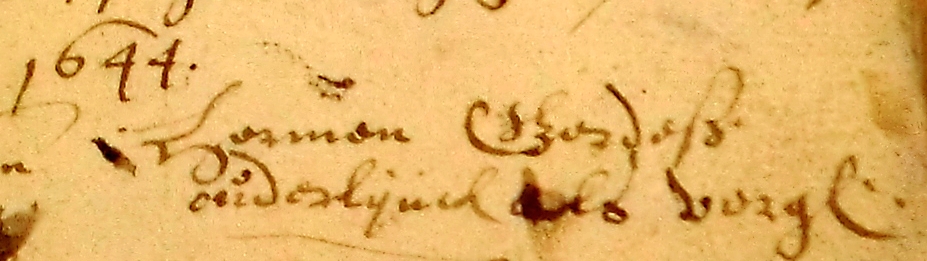 1644.
Hermen Gerdeß
ouderlijnck als vorgl: